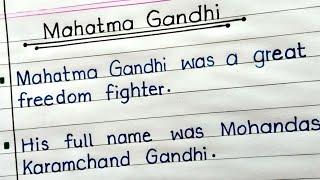 Mahatma Gandhi
Mahatma Gandhi was a great
freedom fighter.
His full name was Mohandas
Karamchand Gandhi.